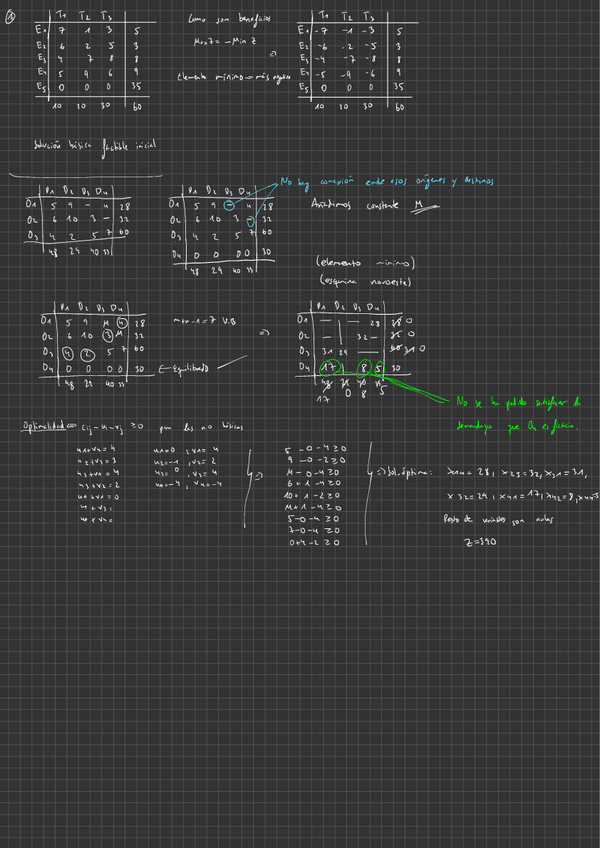 T1 T2 T3
E1 7 1 3 5
E2 6 2 5 3
E3 4 7 8 8
E4 5 9 6 9
E5 0 0 0 35
10 20 30 60
Como son beneficios
Max Z = -Min Z
⇒
Elemento mínimo = más negativo
T1 T2 T3
E1 -7 -1 -3 5
E2 -6 -2 -5 3
E3 -4 -7 -8 8
E4 -5 -9 -6 9
E5 0 0 0 35
10 20 30 60
Solución básica factible inicial
D1 D2 D3 D4
O1 5 9 - 4 28
O2 6 10 3 - 32
O3 4 2 5 7 60
48 29 40 33
D1 D2 D3 D4
O1 5 9 - 4 28
O2 6 10 3 - 32
O3 4 2 5 7 60
O4 0 0 0 0 30
48 29 40 33
No hay conexión entre esos orígenes y destinos
Añadimos constante M
(elemento mínimo)
(esquina noroeste)
D1 D2 D3 D4
O1 5 9 M 4 28
O2 6 10 3 M 32
O3 4 2 5 7 60
O4 0 0 0 0 30
48 29 40 33
m+n-1=7 V.B
⇒
← Equilibrado
D1 D2 D3 D4
O1 28 28 0
O2 32 - 0
O3 31 29 31 0
O4 17 8 5 30
17 0 8 5
No se ha podido satisfacer la
demanda ya que O4 es ficticio.
Optimalidad ⇔ cij - ui - vj ≥ 0 para las no básicas
u1+v4 = 4
u2+v3 = 3
u3+v1 = 4
u3+v2 = 2
u4+v1 = 0
u4+v3 =
u4+v4 =
u1=0 , v1= 4
u2=-1 , v2= 2
u3= 0 , v3= 4
u4=-4 , v4=-4
⇒
5 -0 -4 ≥0
9 -0 -2 ≥0
M -0 -4 ≥0
6 +1 -4 ≥0
10+ 1 -2 ≥0
M+1 -4 ≥0
5-0-4 ≥0
7-0-4 ≥0
0+4-2 ≥0
⇒ Sol. óptima: x14= 28, x23=32, x31=31,
x32=29, x41=17, x43=8, x44=5
Resto de variables son nulas
Z=390